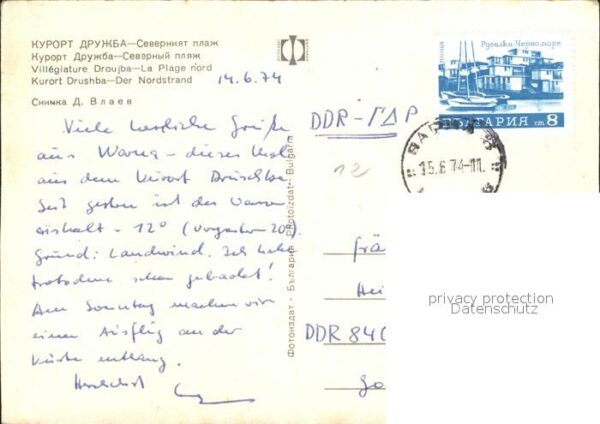 КУРОРТ ДРУЖБА—Северният плаж
Курорт Дружба—Северный пляж
Villégiature Droujba—La Plage nord
Kurort Drushba—Der Nordstrand
Снимка Д. Влаев
14.6.74
Viele herzliche Grüße
aus Warna – dieses Mal
aus dem Kurort Druschba.
Seit gestern ist das Wasser
eiskalt – 12° (vorgestern 20°).
Grund: Landwind. Ich habe
trotzdem schon gebadet!
Am Sonntag machen wir
einen Ausflug an der
Küste entlang.
Herzlichst
Фотоиздат - България Photoizdat - Bulgaria
поща
Русалка-Черноморие
БЪЛГАРИЯ ст. 8
ВАРНА
15.6.74-11.
DDR-ГДР
12
Frä
Hei
DDR 840
privacy protection
Datenschutz